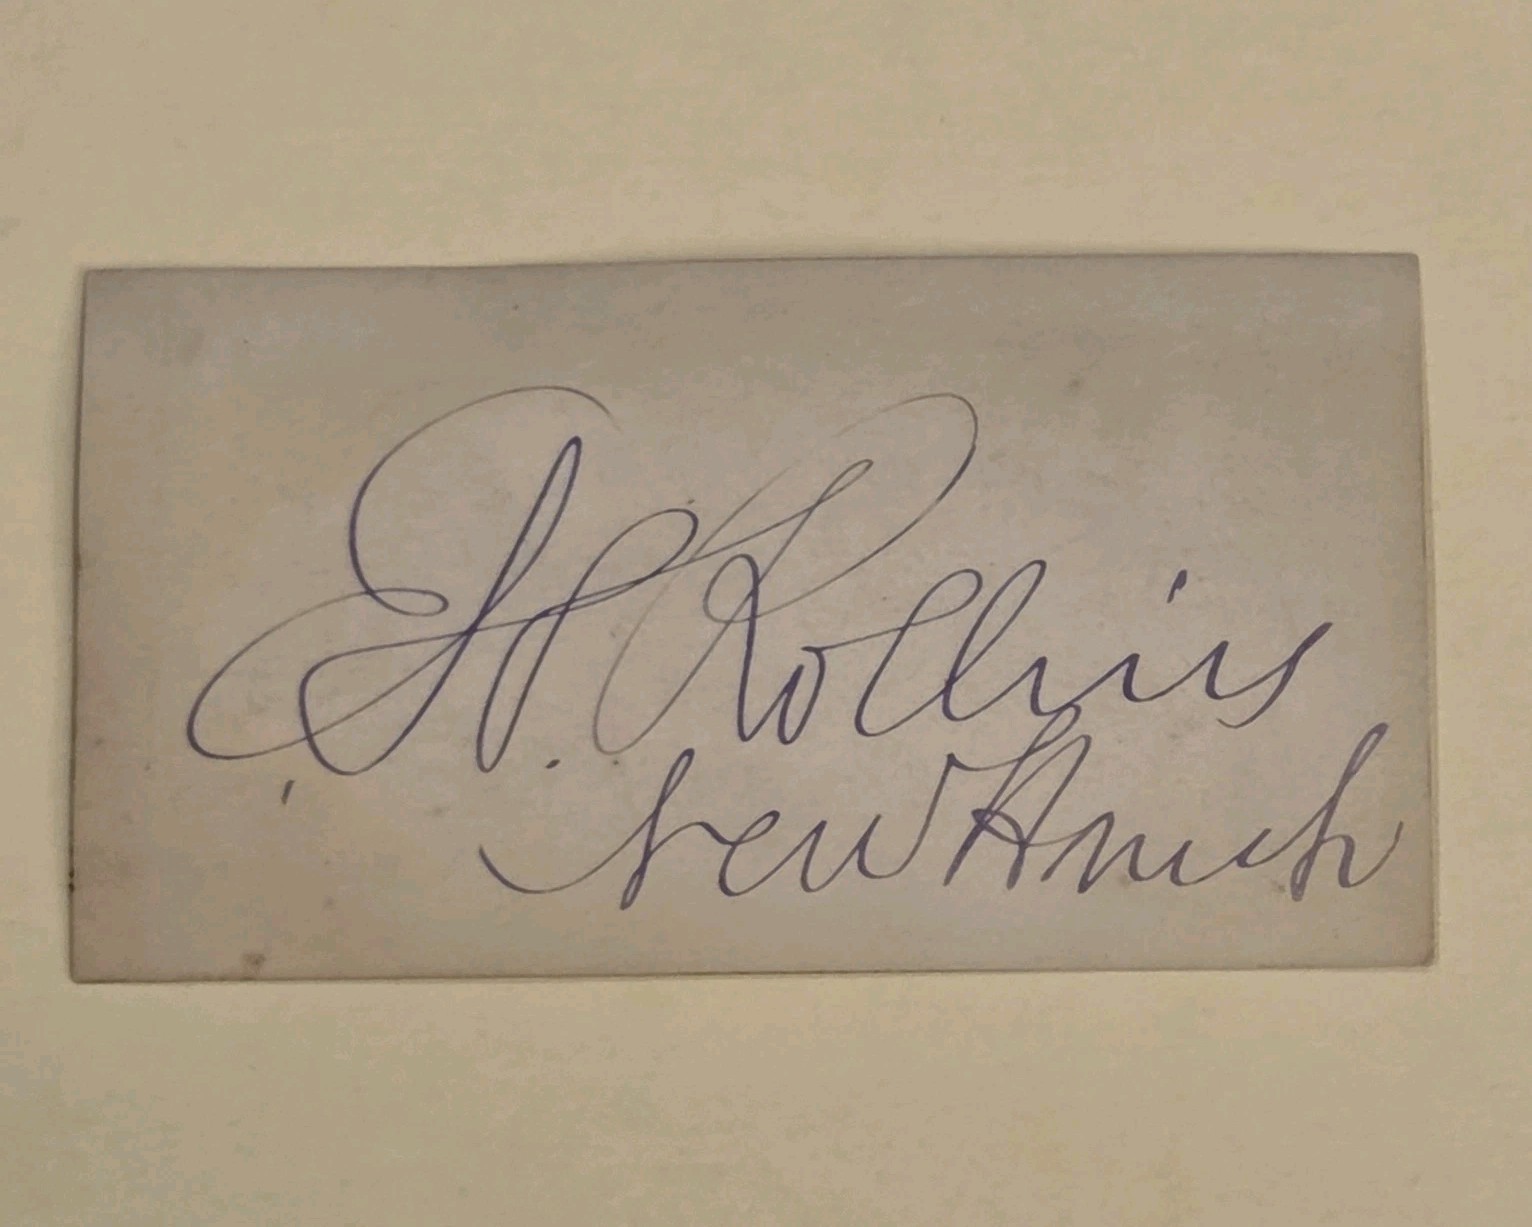 E H. Rollins
New Hamsh